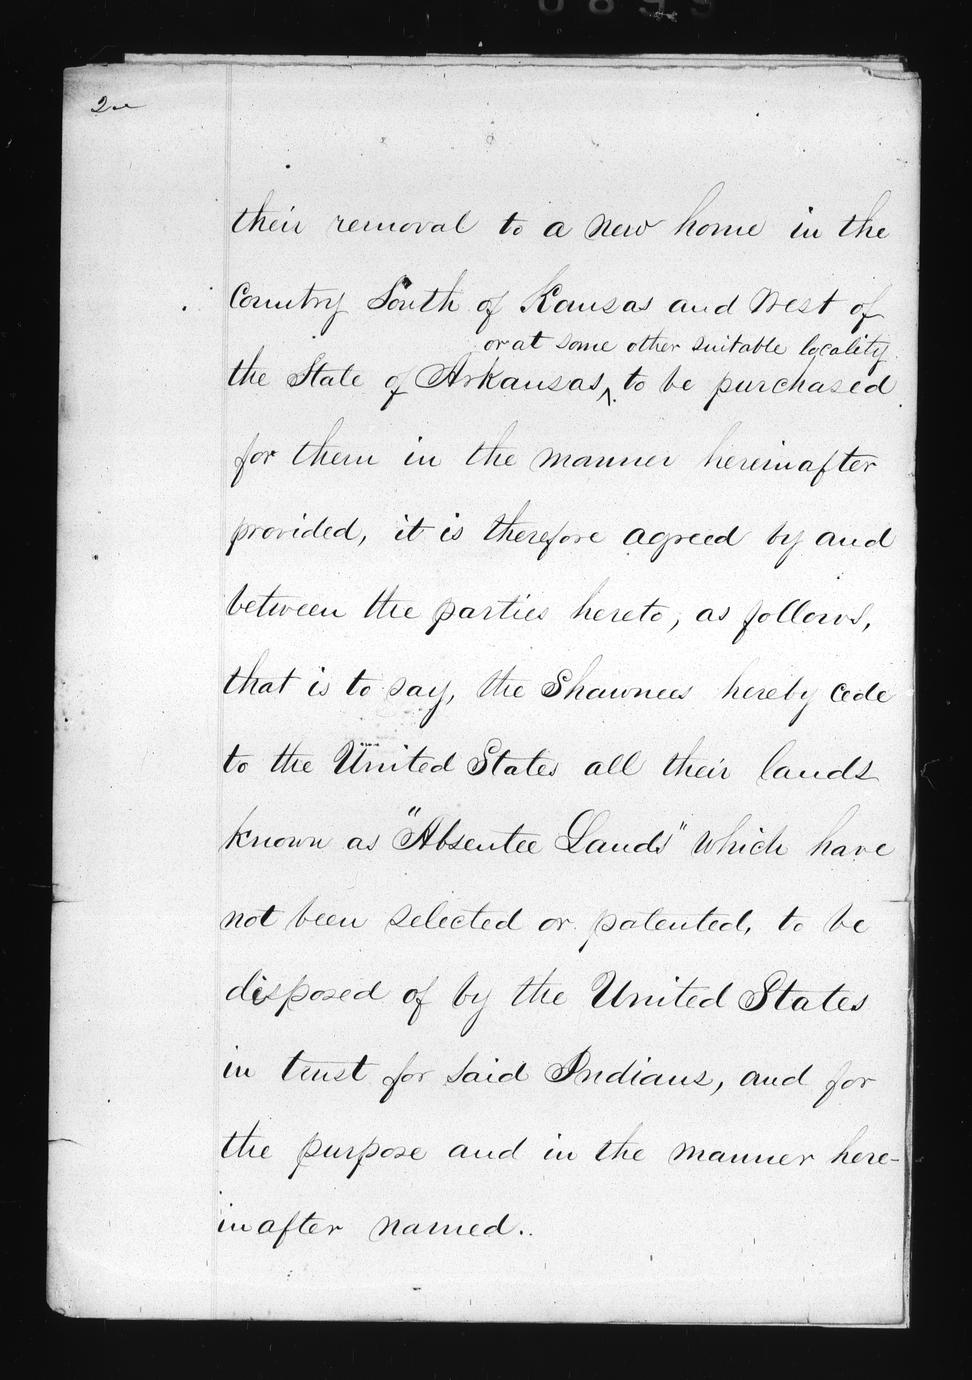 2
their removal to a new home in the
Country South of Kansas and West of
or at some other suitable locality
the State of Arkansas ^ to be purchased
for them in the manner hereinafter
provided, it is therefore agreed by and
between the parties hereto, as follows,
that is to say, the Shawnees hereby cede
to the United States all their lands
known as "Absentee Lands" which have
not been selected or patented, to be
disposed of by the United States
in trust for said Indians, and for
the purpose and in the manner here-
inafter named.